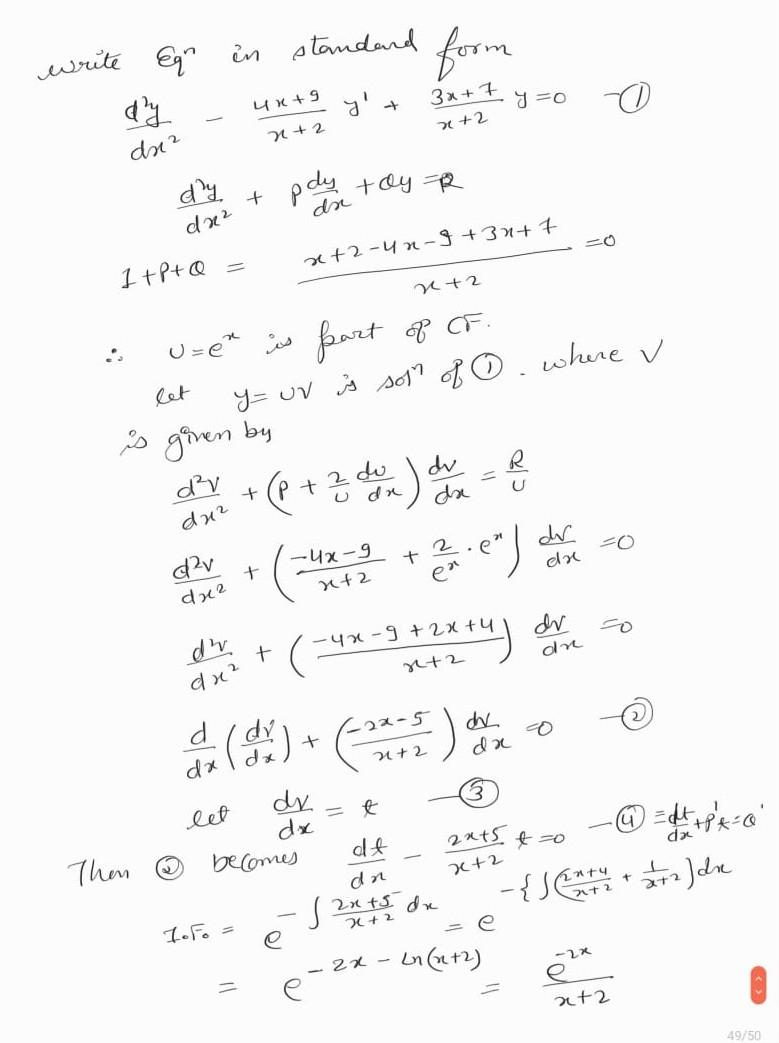 write Eqⁿ in standard form
d²y/dx² - (4x+9)/(x+2) y' + (3x+7)/(x+2) y = 0 —①
d²y/dx² + P dy/dx + Qy = R
1+P+Q = (x+2-4x-9+3x+7)/(x+2) = 0
∴ U = eˣ is part of CF.
let y = UV is solⁿ of ①. where V
is given by
d²V/dx² + (P + 2/U dU/dx) dV/dx = R/U
d²v/dx² + ((-4x-9)/(x+2) + 2/eˣ · eˣ) dv/dx = 0
d²v/dx² + ((-4x-9+2x+4)/(x+2)) dv/dx = 0
d/dx (dv/dx) + ((-2x-5)/(x+2)) dv/dx = 0 —②
let dv/dx = t —③
Then ② becomes dt/dx - (2x+5)/(x+2) t = 0 —④ ≡ dt/dx + P't = Q'
I.F. = e^(-∫ (2x+5)/(x+2) dx) = e^(-{∫((2x+4)/(x+2) + 1/(x+2)) dx)
= e^(-2x - Ln(x+2)) = e^(-2x)/(x+2)
49/50